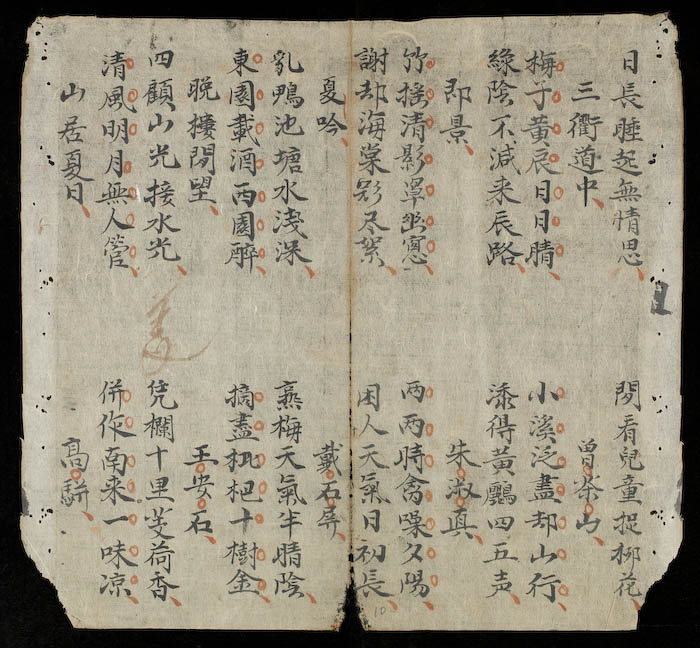 日長睡起無情思 閒看兒童捉柳花
三衢道中 曾茶山
梅子黃辰日日晴 小溪泛盡却山行
綠陰不減来辰路 添得黃鸝四五声
即景 朱淑真
竹摇清影罩幽窓 两两時禽噪夕陽
謝却海棠飛尽絮 困人天氣日初長
夏吟 戴石屏
乳鴨池塘水淺深 熟梅天氣半晴陰
東園載酒西園醉 摘盡枇杷十樹金
晚樓閒望 王安石
四顧山光接水光 凭欄十里芰荷香
清風明月無人管 併作南来一味凉
山居夏日 高駢
10